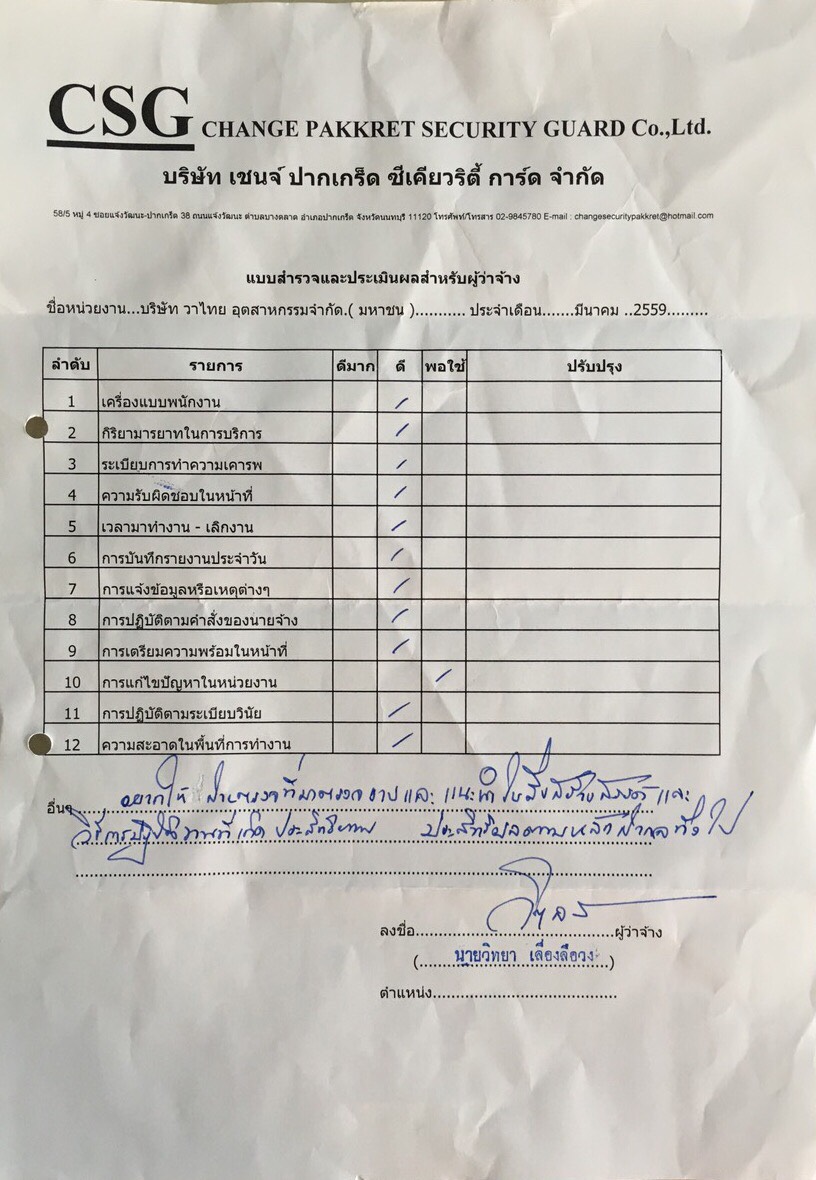 CSG CHANGE PAKKRET SECURITY GUARD Co.,Ltd.
บริษัท เชนจ์ ปากเกร็ด ซีเคียวริตี้ การ์ด จำกัด
58/5 หมู่ 4 ซอยแจ้งวัฒนะ-ปากเกร็ด 38 ถนนแจ้งวัฒนะ ตำบลบางตลาด อำเภอปากเกร็ด จังหวัดนนทบุรี 11120 โทรศัพท์/โทรสาร 02-9845780 E-mail : changesecuritypakkret@hotmail.com
แบบสำรวจและประเมินผลสำหรับผู้ว่าจ้าง
ชื่อหน่วยงาน...บริษัท วาไทย อุตสาหกรรมจำกัด.( มหาชน )........... ประจำเดือน.......มีนาคม ..2559.........
ลำดับ รายการ ดีมาก ดี พอใช้ ปรับปรุง
1 เครื่องแบบพนักงาน /
2 กิริยามารยาทในการบริการ /
3 ระเบียบการทำความเคารพ /
4 ความรับผิดชอบในหน้าที่ /
5 เวลามาทำงาน - เลิกงาน /
6 การบันทึกรายงานประจำวัน /
7 การแจ้งข้อมูลหรือเหตุต่างๆ /
8 การปฏิบัติตามคำสั่งของนายจ้าง /
9 การเตรียมความพร้อมในหน้าที่ /
10 การแก้ไขปัญหาในหน่วยงาน /
11 การปฏิบัติตามระเบียบวินัย /
12 ความสะอาดในพื้นที่การทำงาน /
อื่นๆ อยากให้ และ แนะนำ และ
วิธีการปฏิบัติงานที่เกิด ประสิทธิภาพ ประสิทธิผลตามหลัก
ลงชื่อ ผู้ว่าจ้าง
(นายวิทยา)
ตำแหน่ง